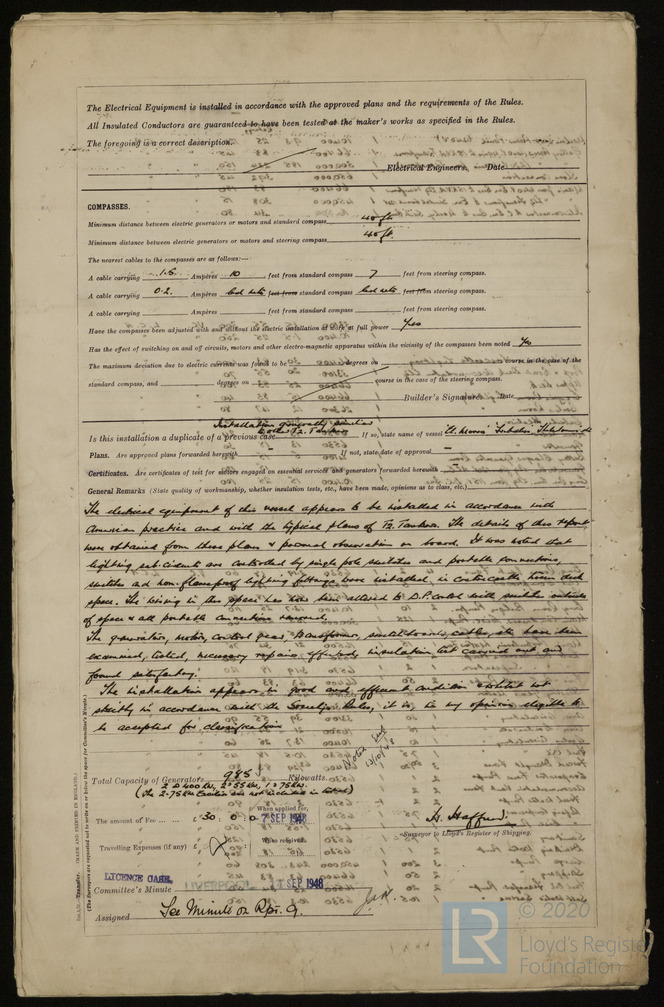 The Electrical Equipment is installed in accordance with the approved plans and the requirements of the Rules.
All Insulated Conductors are guaranteed to have been tested at the maker's works as specified in the Rules.
The foregoing is a correct description.
Electrical Engineers, Date
COMPASSES.
Minimum distance between electric generators or motors and standard compass 40 ft.
Minimum distance between electric generators or motors and steering compass 40 ft.
The nearest cables to the compasses are as follows:—
A cable carrying 1.5 Ampères 10 feet from standard compass 7 feet from steering compass.
A cable carrying 0.2 Ampères led into feet from standard compass led into feet from steering compass.
A cable carrying Ampères feet from standard compass feet from steering compass.
Have the compasses been adjusted with and without the electric installation at work at full power Yes
Has the effect of switching on and off circuits, motors and other electro-magnetic apparatus within the vicinity of the compasses been noted Yes
The maximum deviation due to electric currents was found to be degrees on course in the case of the
standard compass, and degrees on course in the case of the steering compass.
Builder's Signature. Date
Installation generally similar
to other T2 Tankers
Is this installation a duplicate of a previous case If so, state name of vessel
Plans. Are approved plans forwarded herewith — If not, state date of approval —
Certificates. Are certificates of test for motors engaged on essential services and generators forwarded herewith
General Remarks (State quality of workmanship, whether insulation tests, etc., have been made, opinions as to class, etc.)
The electrical equipment of this vessel appears to be installed in accordance with
American practice and with the typical plans of T2 Tankers. The details of this report
were obtained from these plans & personal observation on board. It was noted that
lighting sub-circuits are controlled by single pole switches and portable connections,
switches and non-flameproof lighting fittings were installed in centre castle tween deck
space. The wiring in this space has been altered to D.P. control with switches outside
of space & all portable connections removed.
The generators, motors, control gear, transformers, switchboards, cables, etc have been
examined, tested, necessary repairs effected, insulation test carried out and
found satisfactory.
The installation appears in good and efficient condition & whilst not
strictly in accordance with the Society's Rules, it is, in my opinion eligible to
be accepted for classification.
Noted
13/10/48
Total Capacity of Generators 985 Kilowatts.
(2 @ 400 KW, 2 @ 55 KW, 1 @ 75 KW.
(The 2-75 KW Exciters are not included in total)
The amount of Fee £30 : 0 : 0 When applied for, 7 SEP 1948
H. Hafferd
Surveyor to Lloyd's Register of Shipping.
Travelling Expenses (if any) £ When received,
LICENCE CASE.
Committee's Minute LIVERPOOL SEP 1948
Assigned See Minute on Rpt. 9.
Transfer. (MADE AND PRINTED IN ENGLAND.)
(The Surveyors are requested not to write on or below the space for Committee's Minute.)
© 2020
LR
Lloyd's Register
Foundation